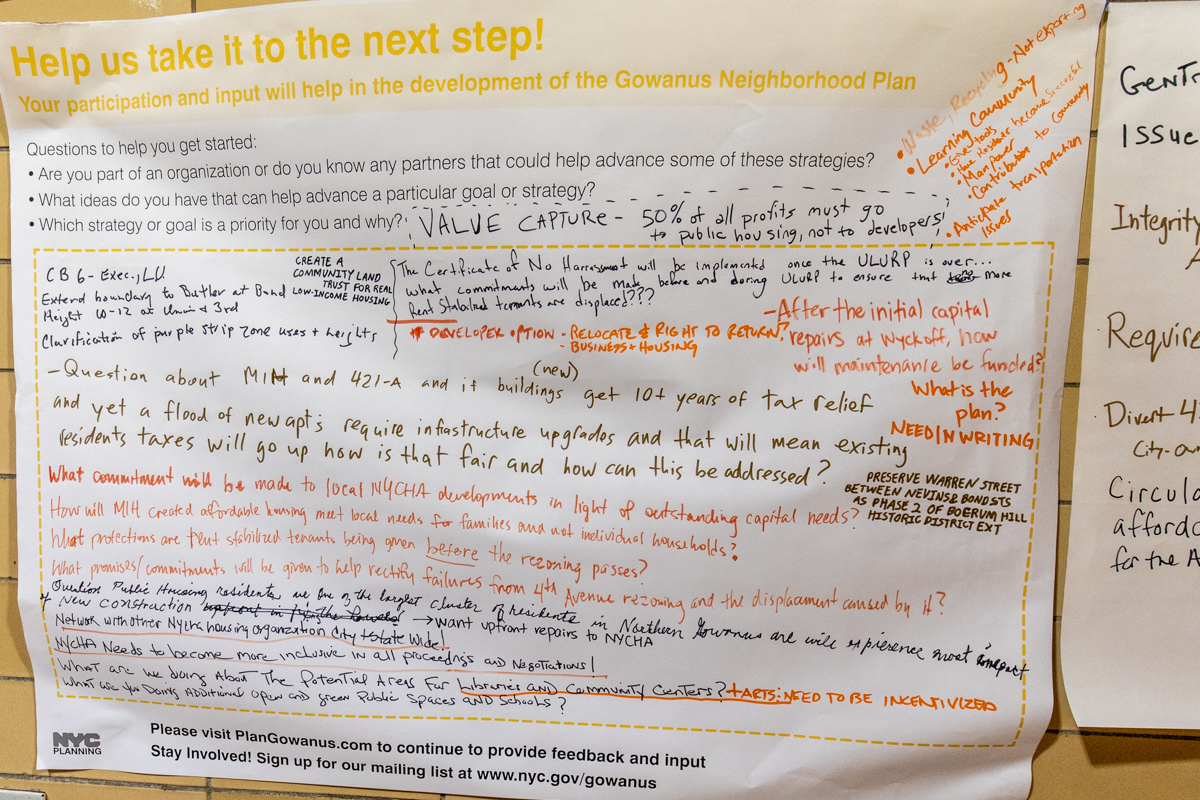 Help us take it to the next step!
Your participation and input will help in the development of the Gowanus Neighborhood Plan
Questions to help you get started:
• Are you part of an organization or do you know any partners that could help advance some of these strategies?
• What ideas do you have that can help advance a particular goal or strategy?
• Which strategy or goal is a priority for you and why?
VALUE CAPTURE - 50% of all profits must go
↳ public housing, not to developers!
• Waste, Recycling - Not exporting
• Learning Community
• Give tools
• Manpower
• Contribution to community
• Anticipate transportation
Issues
CB 6 - Exec., LU
Extend boundary to Butler at Bond
Height 10-12 at Union & 3rd
Clarification of purple strip zone uses + heights
CREATE A
COMMUNITY LAND
TRUST FOR REAL
LOW-INCOME HOUSING
The Certificate of No Harrassment will be implemented once the ULURP is over...
what commitments will be made before and during ULURP to ensure that more
Rent Stabilized tenants are displaced???
* DEVELOPER OPTION - RELOCATE & RIGHT TO RETURN?
- BUSINESS + HOUSING
- After the initial capital
repairs at Wyckoff, how
will maintenance be funded?
What is the
plan?
NEED IN WRITING
- Question about MIH and 421-A and if (new) buildings get 10+ years of tax relief
and yet a flood of new apt's require infastructure upgrades and that will mean existing
residents taxes will go up how is that fair and how can this be addressed?
PRESERVE WARREN STREET
BETWEEN NEVINS & BOND STS
AS PHASE 2 OF BOERUM HILL
HISTORIC DISTRICT EXT
What commitment will be made to local NYCHA developments in light of outstanding capital needs?
How will MIH created affordable housing meet local needs for families and not individual households?
What protections are rent stabilized tenants being given before the rezoning passes?
What promises/commitments will be given to help rectify failures from 4th Avenue rezoning and the displacement caused by it?
Question Public Housing residents are one of the largest cluster of residents in Northern Gowanus are will experience most
* New construction → want upfront repairs to NYCHA
Network with other Nycha housing organization City + State Wide!
NYCHA Needs to become more inclusive in all proceedings and Negotiations!
What are we doing About The Potential Areas For Libraries and Community Centers? + ARTS: NEED TO BE INCENTIVIZED
What are you Doing Additional Open and green Public Spaces AND Schools?
NYC
PLANNING
Please visit PlanGowanus.com to continue to provide feedback and input
Stay Involved! Sign up for our mailing list at www.nyc.gov/gowanus
Issue
Integrity
Require
Divert
for the A